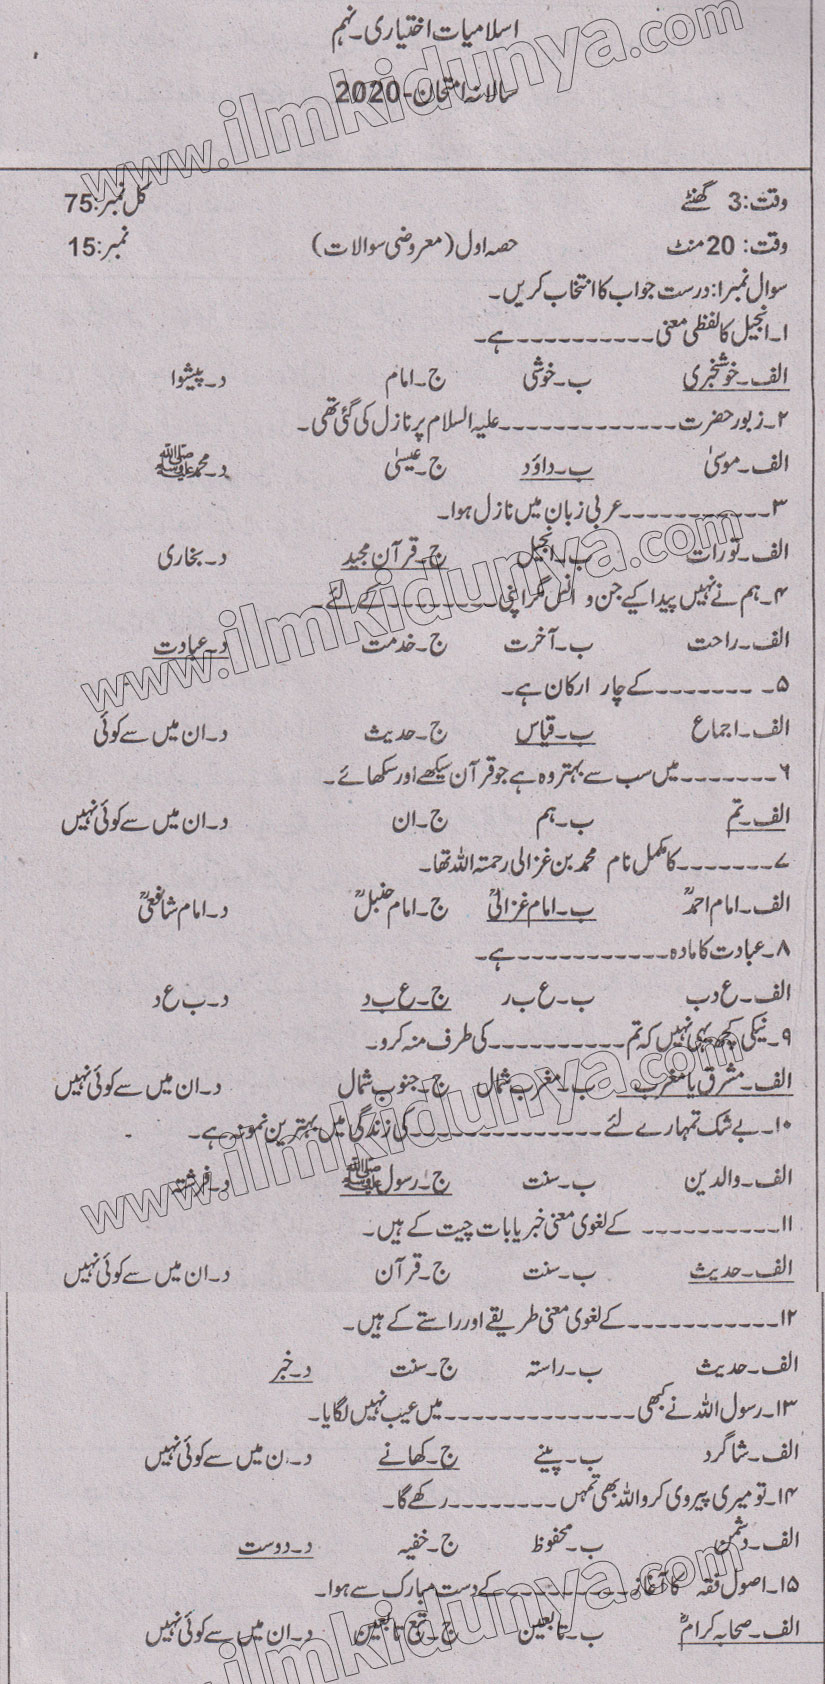 اسلامیات اختیاری۔ نہم
سالانہ امتحان-2020
وقت: 3 گھنٹے کل نمبر: 75
وقت: 20 منٹ حصہ اول (معروضی سوالات) نمبر: 15
سوال نمبر ۱: درست جواب کا انتخاب کریں۔
۱۔ انجیل کا لفظی معنی ----------- ہے۔
الف۔ خوشخبری ب۔ خوشی ج۔ امام د۔ پیشوا
۲۔ زبور حضرت ------------- علیہ السلام پر نازل کی گئی تھی۔
الف۔ موسیٰ ب۔ داؤد ج۔ عیسیٰ د۔ محمد ﷺ
۳۔ ----------- عربی زبان میں نازل ہوا۔
الف۔ تورات ب۔ انجیل ج۔ قرآن مجید د۔ بخاری
۴۔ ہم نے نہیں پیدا کیے جن و انس مگر اپنی --------- کے لئے۔
الف۔ راحت ب۔ آخرت ج۔ خدمت د۔ عبادت
۵۔ -------- کے چار ارکان ہے۔
الف۔ اجماع ب۔ قیاس ج۔ حدیث د۔ ان میں سے کوئی
۶۔ ------- میں سب سے بہتر وہ ہے جو قرآن سیکھے اور سکھائے۔
الف۔ تم ب۔ ہم ج۔ ان د۔ ان میں سے کوئی نہیں
۷۔ ------- کا مکمل نام محمد بن غزالی رحمتہ اللہ تھا۔
الف۔ امام احمدؒ ب۔ امام غزالیؒ ج۔ امام حنبلؒ د۔ امام شافعیؒ
۸۔ عبادت کا مادہ ----------- ہے۔
الف۔ ع د ب ب۔ ع ب ر ج۔ ع ب د د۔ ب ع د
۹۔ نیکی کچھ یہی نہیں کہ تم ---------- کی طرف منہ کرو۔
الف۔ مشرق یا مغرب ب۔ مغرب شمال ج۔ جنوب شمال د۔ ان میں سے کوئی نہیں
۱۰۔ بے شک تمہارے لئے -------------- کی زندگی میں بہترین نمونہ ہے۔
الف۔ والدین ب۔ سنت ج۔ رسول ﷺ د۔ فرشتہ
۱۱۔ ---------- کے لغوی معنی خبر یا بات چیت کے ہیں۔
الف۔ حدیث ب۔ سنت ج۔ قرآن د۔ ان میں سے کوئی نہیں
۱۲۔ ----------- کے لغوی معنی طریقے اور راستے کے ہیں۔
الف۔ حدیث ب۔ راستہ ج۔ سنت د۔ خبر
۱۳۔ رسول اللہ نے کبھی -------------- میں عیب نہیں لگایا۔
الف۔ شاگرد ب۔ پینے ج۔ کھانے د۔ ن میں سے کوئی نہیں
۱۴۔ تو میری پیروی کرو اللہ بھی تمہں -------- رکھے گا۔
الف۔ دشمن ب۔ محفوظ ج۔ خفیہ د۔ دوست
۱۵۔ اصول فقہ کا آغاز ---------- کے دست مبارک سے ہوا۔
الف۔ صحابہ کرامؓ ب۔ تابعین ج۔ تبع تابعین د۔ ان میں سے کوئی نہیں
www.ilmkidunya.com
www.ilmkidunya.com
www.ilmkidunya.com
www.ilmkidunya.com